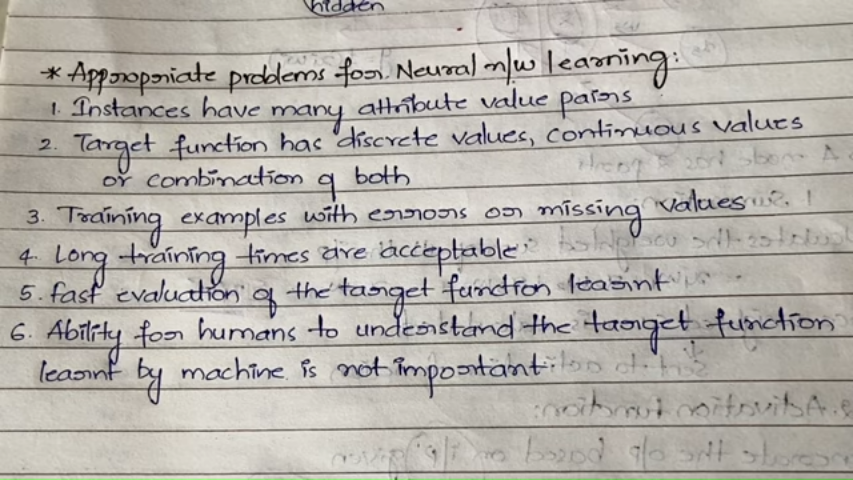 hidden
* Appropriate problems for Neural n/w learning:
1. Instances have many attribute value pairs
2. Target function has discrete values, continuous values
or combination of both
3. Training examples with errors or missing values
4. Long training times are acceptable
5. fast evaluation of the target function learnt
6. Ability for humans to understand the target function
learnt by machine is not important